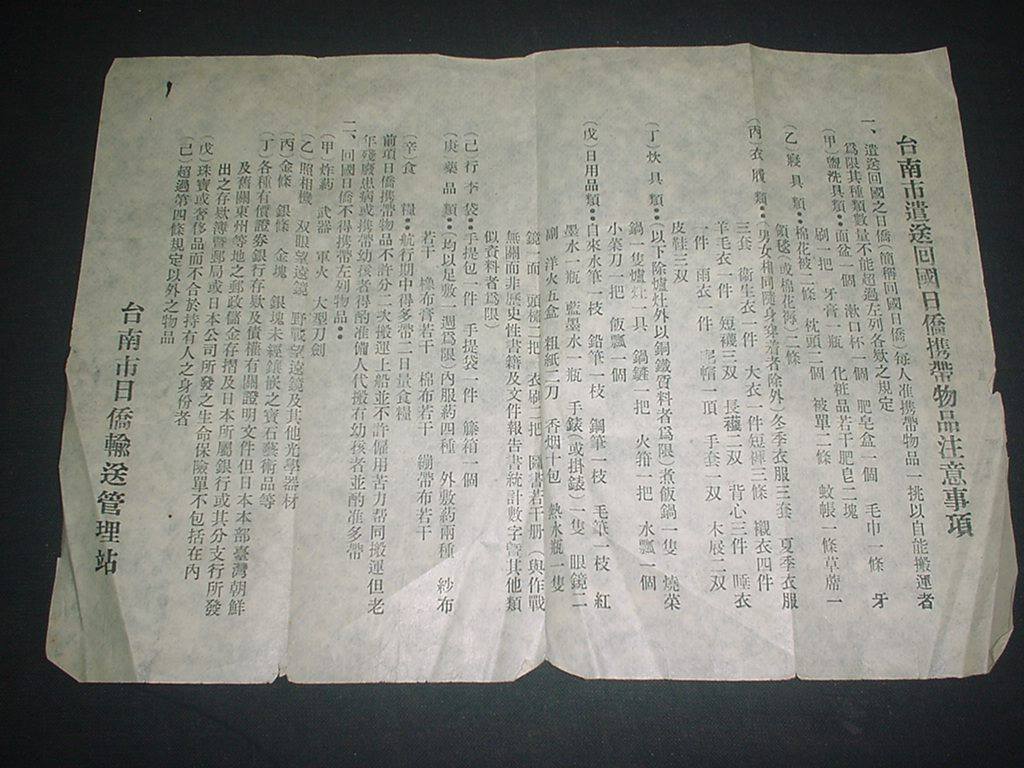 台南市遣送回國日僑攜帶物品注意事項
一、遣送回國之日僑(簡稱回國日僑)每人准攜帶物品一挑以自能搬運者
爲限其種類數量不能超過左列各欵之規定
(甲)盥洗具類••面盆一個 漱口杯一個 肥皂盒一個 毛巾一條 牙
刷一把 牙膏一瓶 化粧品若干肥皂二塊
(乙)寢具類••棉花被二條 枕頭二個 被單二條 蚊帳一條草蓆一
領毯(或棉花褥)二條
(丙)衣履類••(男女相同隨身穿着者除外)冬季衣服三套 夏季衣服
三套 衛生衣一件 大衣一件短褲三條 襯衣四件
羊毛衣一件 短襪三双 長襪二双 背心三件 睡衣
一件 雨衣一件 呢帽一頂 手套一双 木屐二双
皮鞋三双
(丁)炊具類••(以下除爐灶外以銅鐵質料者爲限)煮飯鍋一隻 燒菜
鍋一隻爐灶一具 鍋鏟一把 火箝一把 水瓢一個
小菜刀一把 飯瓢一個
(戊)日用品類••自來水筆一枝 鉛筆一枝 鋼筆一枝 毛筆一枝 紅
墨水一瓶 藍墨水一瓶 手錶(或掛錶)一隻 眼鏡二
副 洋火五盒 粗紙二刀 香烟十包 熱水瓶一隻
鏡一面 頭梳二把 衣刷二把 圖書若干册(與作戰
無關而非歷史性書籍及文件報告書統計數字暨其他類
似資料者爲限)
(己)行李袋••手提包一件 手提袋一件 籐箱一個
(庚)藥品類••(均以足敷一週爲限)內服葯四種 外敷葯兩種 紗布
若干 橡布膏若干 棉布若干 繃帶布若干
(辛)食 糧••航行期中得多帶二日量食糧
前項日僑攜帶物品不許分二次搬運上船並不許僱用苦力帮同搬運但老
年殘廢患病或携帶幼孩者得酌准僱人代搬有幼孩者並酌准多帶
二、回國日僑不得携帶左列物品••
(甲)炸葯 武器 軍火 大型刀劍
(乙)照相機 双眼望遠鏡 野戰望遠鏡及其他光學器材
(丙)金條 銀條 金塊 銀塊未經鑲嵌之寶石藝術品等
(丁)各種有價證券銀行存欵及債權有關證明文件但日本本部臺灣朝鮮
及舊關東州等地之郵政儲金存摺及日本所屬銀行或其分支行所發
出之存欵簿暨郵局或日本公司所發之生命保險單不包括在內
(戊)珠寶或奢侈品而不合於持有人之身份者
(己)超過第四條規定以外之物品
台南市日僑輸送管理站